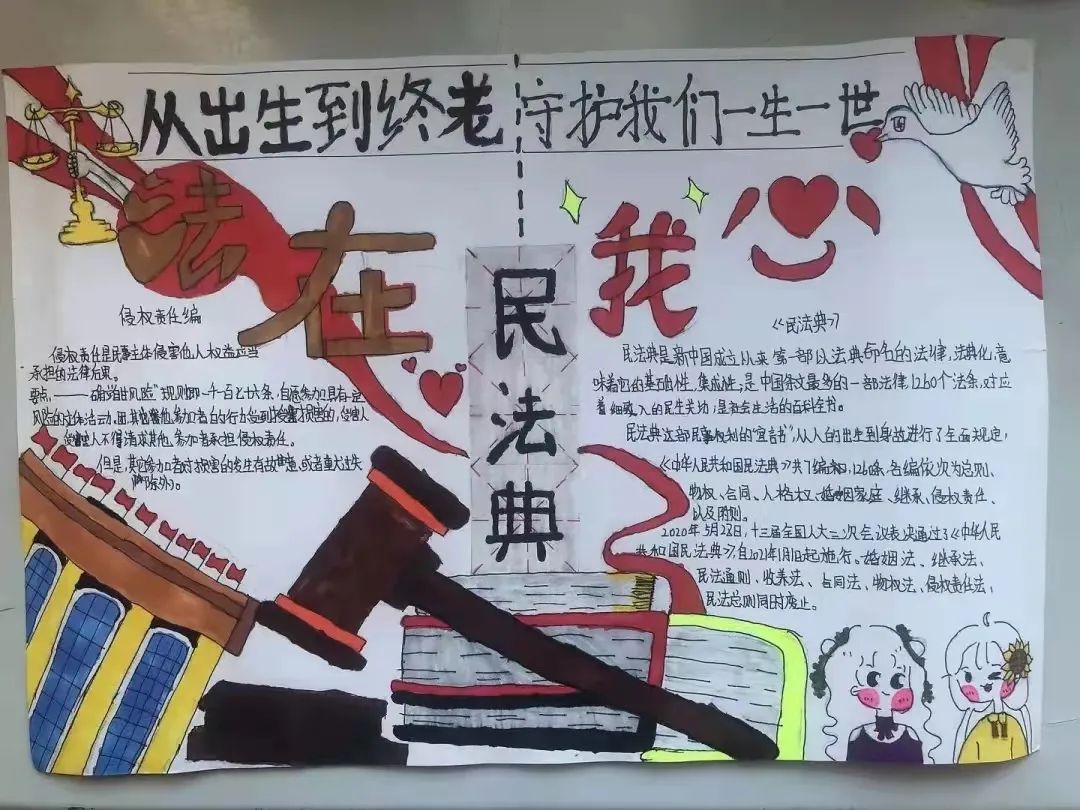 从出生到终老 守护我们一生一世
法在我
民法典
侵权责任编
侵权责任是民事主体侵害他人权益应当
承担的法律后果。
要点，——确立"自甘风险"规则即一千一百七十六条，自愿参加具有一定
风险的文体活动，因其他参加者的行为受到损害的，受害人
不得请求其他参加者承担侵权责任。
但是，其他参加者对损害的发生有故意或者重大过失
除外。
《民法典》
民法典是新中国成立以来第一部以法典命名的法律，法典化，意
味着它的基础性、集成性，是中国条文最多的一部法律，1260个法条，对应
着细致入的民生关切，是社会生活的百科全书。
民法典这部民事权利的"宣言书"，从人的出生到身故进行了全面规定，
《中华人民共和国民法典》共7编，1260条，各编依次为总则、
物权、合同、人格权、婚姻家庭、继承、侵权责任、
以及附则。
2020年5月28日，十三届全国人大三次会议表决通过了《中华人民
共和国民法典》，自2021年1月1日起施行。婚姻法、继承法、
民法通则、收养法、合同法、物权法、侵权责任法、
民法总则同时废止。